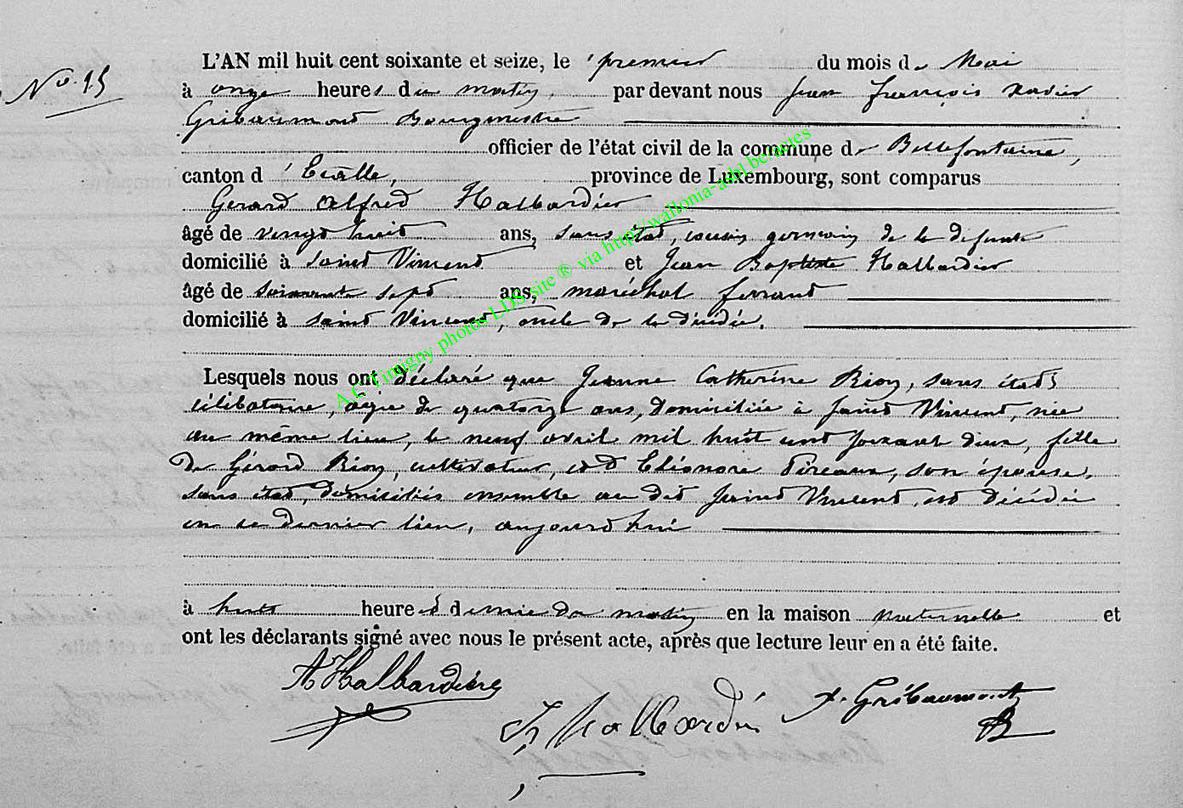 No 15
L'AN mil huit cent soixante et seize, le premier du mois de Mai
à onze heures du matin, par devant nous Jean françois xavier
Gribaumont Bourgmestre
officier de l'état civil de la commune de Bellefontaine,
canton d'Etalle, province de Luxembourg, sont comparus
Gérard Alfred Halbardier
âgé de vingt huit ans, sans état, cousin germain de la défunte
domicilié à saint Vincent et Jean Baptiste Halbardier
âgé de soixante sept ans, maréchal ferrant
domicilié à saint Vincent, oncle de la décédée.
Lesquels nous ont déclaré que Jeanne Catherine Rion, sans état
célibataire, âgée de quatorze ans, domiciliée à Saint Vincent, née
au même lieu, le neuf avril mil huit cent soixante deux, fille
de Gérard Rion, cultivateur, et d'Eléonore Pireaux, son épouse,
sans état, domiciliés ensemble au dit Saint Vincent, est décédée
en ce dernier lieu, aujourd'hui
à huit heures et demie du matin en la maison maternelle et
ont les déclarants signé avec nous le présent acte, après que lecture leur en a été faite.
A Halbardier
J B Halbardier
x. Gribaumont
A.C. Tintigny photos LDS site ® via http://wallonia-asbl.be/actes